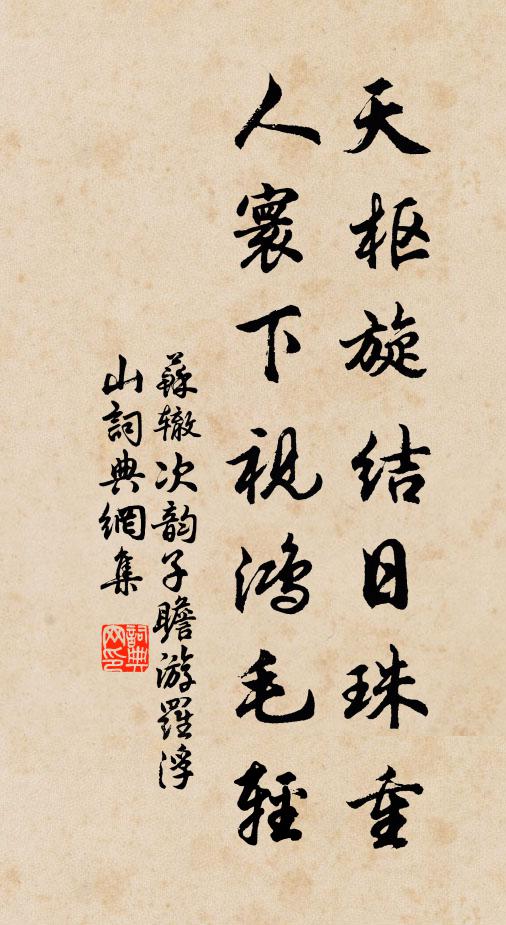 天枢旋结日珠重
人寰下视鸿毛轻
蘇辙次韵子瞻游羅浮
山詞典網集
詞典
网印